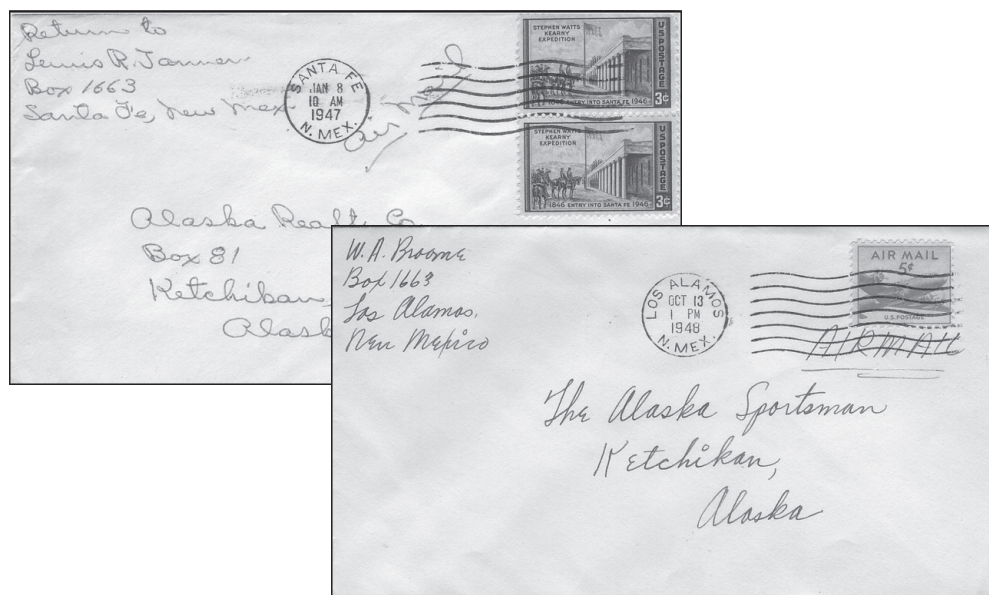 Return to
Lewis R. Tanner
Box 1663
Santa Fe, New Mex
SANTA FE
JAN 8
10 AM
1947
N. MEX.
Air Mail
STEPHEN WATTS
KEARNY
EXPEDITION
U.S. POSTAGE
1846 ENTRY INTO SANTA FE 1946
3¢
STEPHEN WATTS
KEARNY
EXPEDITION
U.S. POSTAGE
1846 ENTRY INTO SANTA FE 1946
3¢
Alaska Realt Co
Box 81
Ketchikan,
Alask
W. A. Broome
Box 1663
Los Alamos,
New Mexico
LOS ALAMOS
OCT 13
1 PM
1948
N. MEX.
AIR MAIL
5¢
U.S. POSTAGE
AIRMAIL
The Alaska Sportsman
Ketchikan,
Alaska